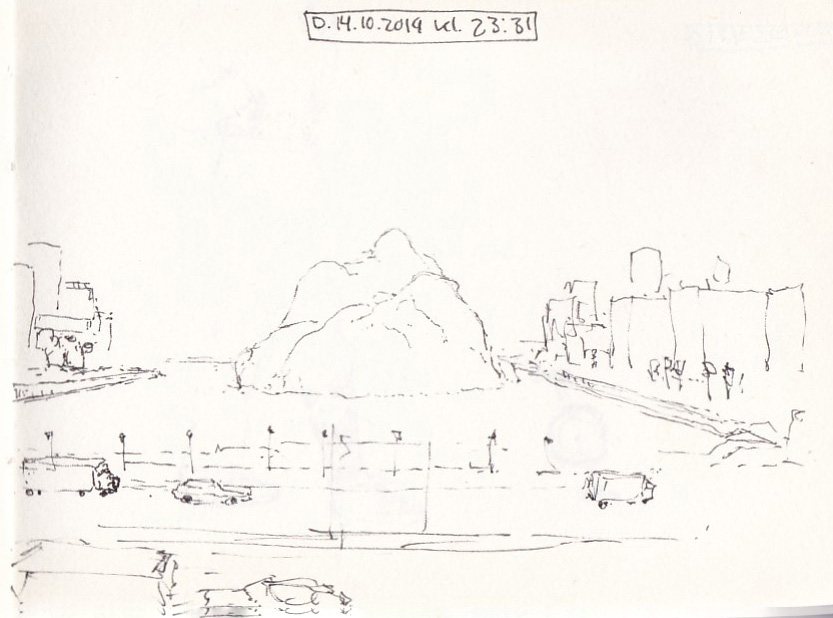 D. 14.10.2019 kl. 23:31